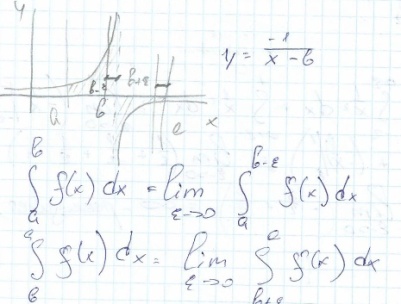 y
b-ε b+ε
a b c x
y = -1/(x - b)
∫_a^b f(x) dx = lim_{ε→0} ∫_a^{b-ε} f(x) dx
∫_b^c f(x) dx = lim_{ε→0} ∫_{b+ε}^c f(x) dx